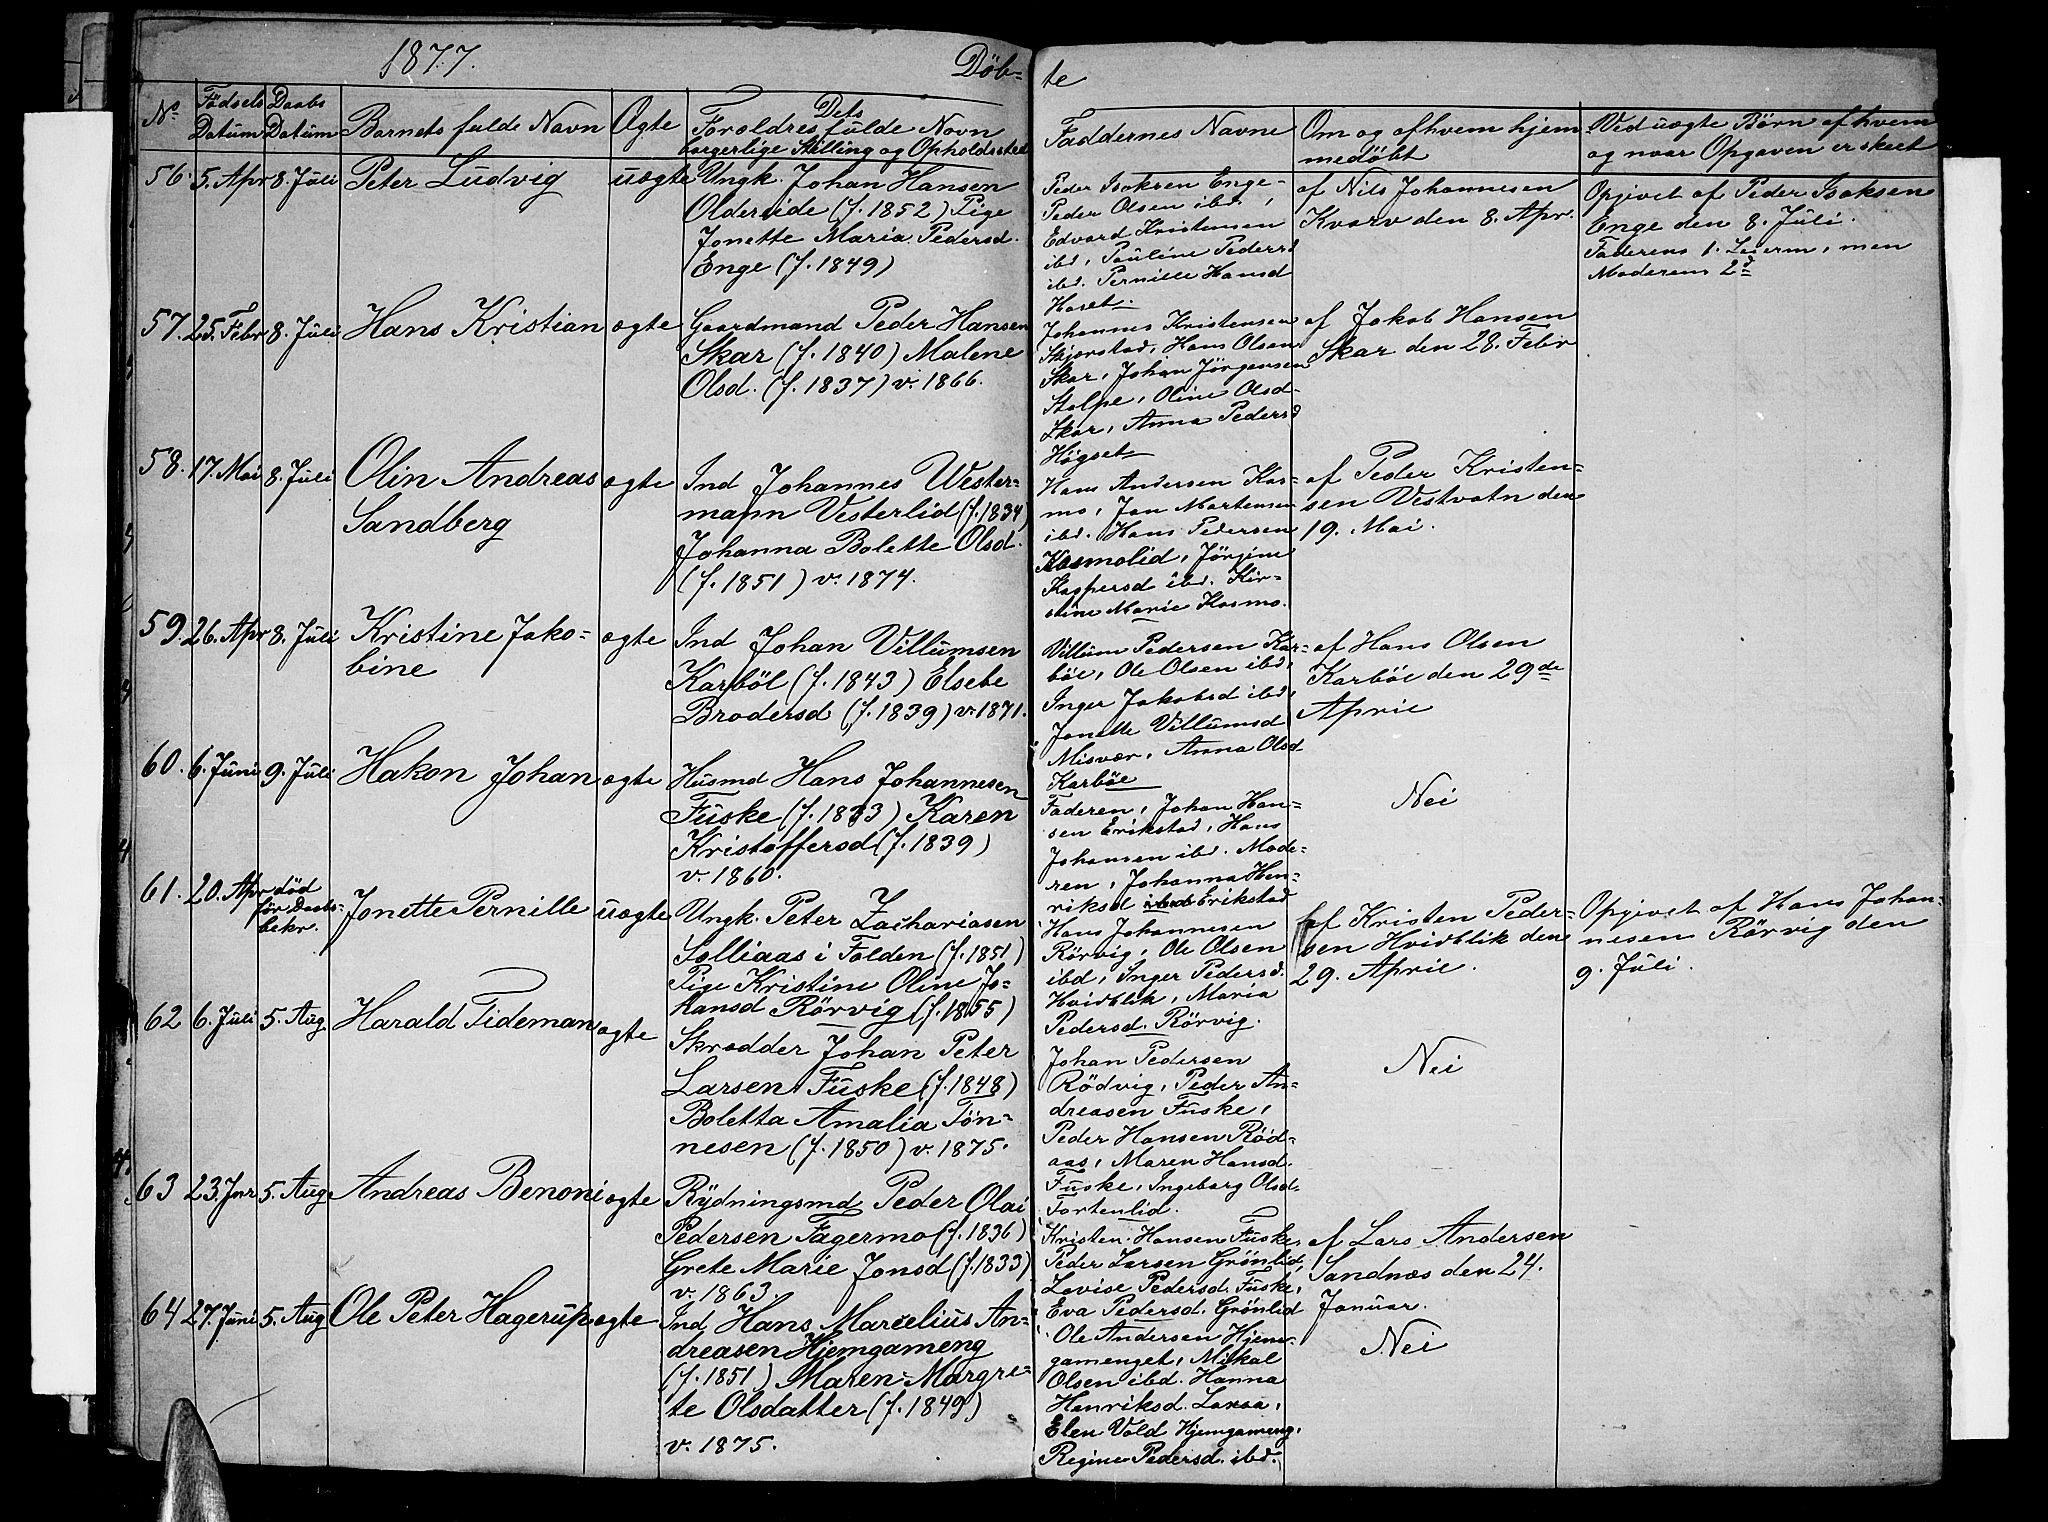 1877.
Döb-
te
No
Födsels Datum
Daabs Datum
Barnets fulde Navn
Ægte
Dets Forældres fulde Navn
borgerlige Stilling og Opholdssted
Faddernes Navne
Om og af hvem hjem-
medöbt
Ved uægte Börn af hvem
og naar Opgaven er skeet
56. 5. Apr 8. Juli Peter Ludvig uægte
Ungk. Johan Hansen
Oldereide (f. 1852) Pige
Jonette Maria Pedersd.
Enge (f. 1849)
Peder Isaksen Enge
Peder Olsen ibd,
Edvard Kristensen
ibd, Pauline Pedersd
ibd. Pernille Hansd
Hoset.
af Nils Johannesen
Kvarv den 8. Apr.
Opgivet af Peder Isaksen
Enge den 8. Juli.
Faderens 1. Leierm, men
Moderens 2d
57. 25. Febr 8. Juli Hans Kristian ægte
Gaardmand Peder Hansen
Skar (f. 1840) Malene
Olsd. (f. 1837) v. 1866.
Johannes Kristensen
Skjerstad, Hans Olsen
Skar, Johan Jörgensen
Stolpe, Oline Olsd
Skar, Anna Pedersd
Högset
af Jakob Hansen
Skar den 28. Febr
58. 17. Mai 8. Juli Olin Andreas ægte
Sandberg
Ind Johannes Wester-
mann Vesterlid (f. 1834)
Johanna Bolette Olsd.
(f. 1851) v. 1874.
Hans Andersen Kos-
mo, Jon Mortensen
ibd. Hans Pedersen
Kosmolid, Jörgine
Kaspersd ibd. Kir-
stine Marie Kosmo.
af Peder Kristen-
sen Vestvatn den
19. Mai.
59 26. Apr 8. Juli Kristine Jako- ægte
bine
Ind Johan Villumsen
Karböl (f. 1843) Elsebe
Brodersd (f. 1839) v. 1871.
Villum Pedersen Kar-
böe, Ole Olsen ibd,
Inger Jakobsd ibd,
Jonette Villumsd
Misvær, Anna Olsd
Karböe
af Hans Olsen
Karböe den 29de
April
60. 6. Juni 9. Juli Hakon Johan ægte
Husmd Hans Johannesen
Fuske (f. 1833) Karen
Kristoffersd (f. 1839)
v. 1860.
Faderen, Johan Han-
sen Erikstad, Hans
Johansen ibd. Mode-
ren, Johanna Hen-
riksd Erikstad
Nei
61. 20. Apr död
för Daabs-
bekr.
Jonette Pernille uægte
Ungk. Peter Zachariasen
Solliaas i Folden (f. 1851)
Pige Kristine Oline Jo-
hansd Rörvig (f. 1855)
Hans Johannesen
Rörvig, Ole Olsen
ibd, Inger Pedersd.
Hvidblik, Maria
Pedersd. Rörvig.
af Kristen Peder-
sen Hvidblik den
29. April.
Opgivet af Hans Johan-
nesen Rörvig den
9. Juli.
62 6. Juli 5. Aug. Harald Tideman ægte
Skrædder Johan Peter
Larsen Fuske (f. 1848)
Boletta Amalia Tön-
nesen (f. 1850) v. 1875.
Johan Pedersen
Rödvig, Peder An-
dreasen Fuske,
Peder Hansen Röd-
aas, Maren Hansd.
Fuske, Ingeborg Olsd
Tortenlid.
Nei
63 23. Jnr 5. Aug Andreas Benoni ægte
Rydningsmd Peder Olai
Pedersen Fagermo (f. 1836)
Grete Marie Jonsd (f. 1833)
v. 1863.
Kristen Hansen Fuske,
Peder Larsen Grönlid,
Lovise Pedersd. Fuske,
Eva Pedersd. Grönlid
af Lars Andersen
Sandnæs den 24.
Januar.
64 27. Juni 5. Aug Ole Peter Hagerup ægte
Ind Hans Marcelius An-
dreasen Hjemgameng
(f. 1851) Maren Margre-
te Olsdatter (f. 1849)
v. 1875.
Ole Andersen Hjem-
gamenget, Mikal
Olsen ibd. Hanna
Henriksd.
Elen Vold Hjemgameng.
Regine Pedersd. ibd.
Nei